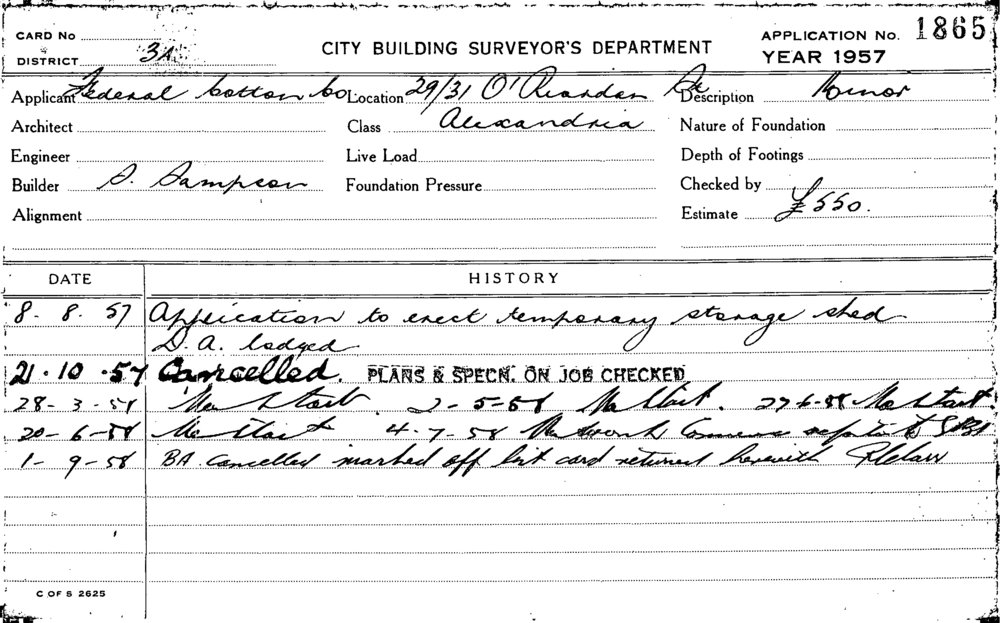 CARD No
APPLICATION No. 1865
DISTRICT 3A
CITY BUILDING SURVEYOR'S DEPARTMENT
YEAR 1957
Applicant Federal Cotton Co Location 29/31 O'Riordan St Description Minor
Architect Class Alexandria Nature of Foundation
Engineer Live Load Depth of Footings
Builder S. Sampson Foundation Pressure Checked by
Alignment Estimate £550.
DATE HISTORY
8. 8. 57 Application to erect temporary storage shed
D.A. lodged
21.10.57 Cancelled. PLANS & SPECN. ON JOB CHECKED
28-3-58 No Start. 2-5-58 No Start. No Start.
20-6-58 No Start 4-7-58 No work
1-9-58 BA. cancelled marked off list card returned herewith
C OF S 2625